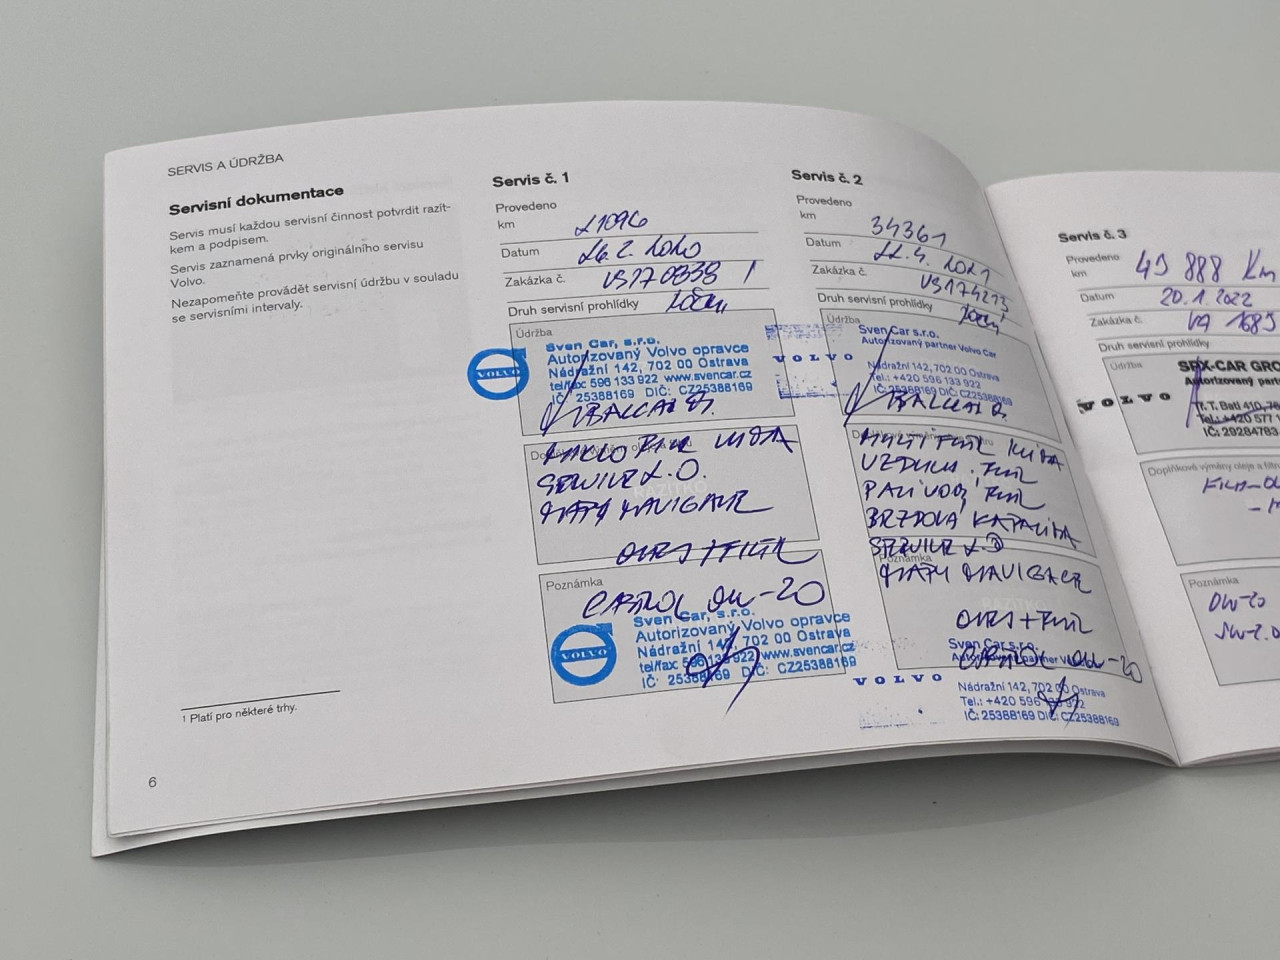 SERVIS A ÚDRŽBA
Servisní dokumentace
Servis musí každou servisní činnost potvrdit razít-
kem a podpisem.
Servis zaznamená prvky originálního servisu
Volvo.
Nezapomeňte provádět servisní údržbu v souladu
se servisními intervaly.
1 Platí pro některé trhy.
6
Servis č. 1
Provedeno
km 21096
Datum 26.2.2020
Zakázka č.
Druh servisní prohlídky roční
Údržba
Sven Car, s.r.o.
Autorizovaný Volvo opravce
VOLVO
Nádražní 142, 702 00 Ostrava
tel/fax: 596 133 922 www.svencar.cz
IČ: 25388169 DIČ: CZ25388169
SERVICE 2.0.
MAPY NAVIGACE
OLEJ + FILTR
Poznámka
CASTROL 0W-20
Sven Car, s.r.o.
Autorizovaný Volvo opravce
VOLVO
Nádražní 142, 702 00 Ostrava
tel/fax: 596 133 922 www.svencar.cz
IČ: 25388169 DIČ: CZ25388169
Servis č. 2
Provedeno
km 34361
Datum 22.4.2021
Zakázka č.
Druh servisní prohlídky roční
Údržba
Sven Car s.r.o.
Autorizovaný partner Volvo Car
VOLVO
Nádražní 142, 702 00 Ostrava
Tel.: +420 596 133 922
IČ: 25388169 DIČ: CZ25388169
VZDUCH. FILTR
PALIVOVÝ FILTR
BRZDOVÁ KAPALINA
SERVICE
Poznámka
MAPY NAVIGACE
OLEJ + FILTR
CASTROL 0W-20
Sven Car s.r.o.
Autorizovaný partner
VOLVO
Nádražní 142, 702 00 Ostrava
Tel.: +420 596 133 922
IČ: 25388169 DIČ: CZ25388169
Servis č. 3
Provedeno
km 49 888 Km
Datum 20.1.2022
Zakázka č.
Druh servisní prohlídky
Údržba
Autorizovaný
VOLVO
Tř. T. Bati 410,
Tel.: +420 577
IČ: 29284783
Doplňkové výměny oleje a filtru
Poznámka
0W-20